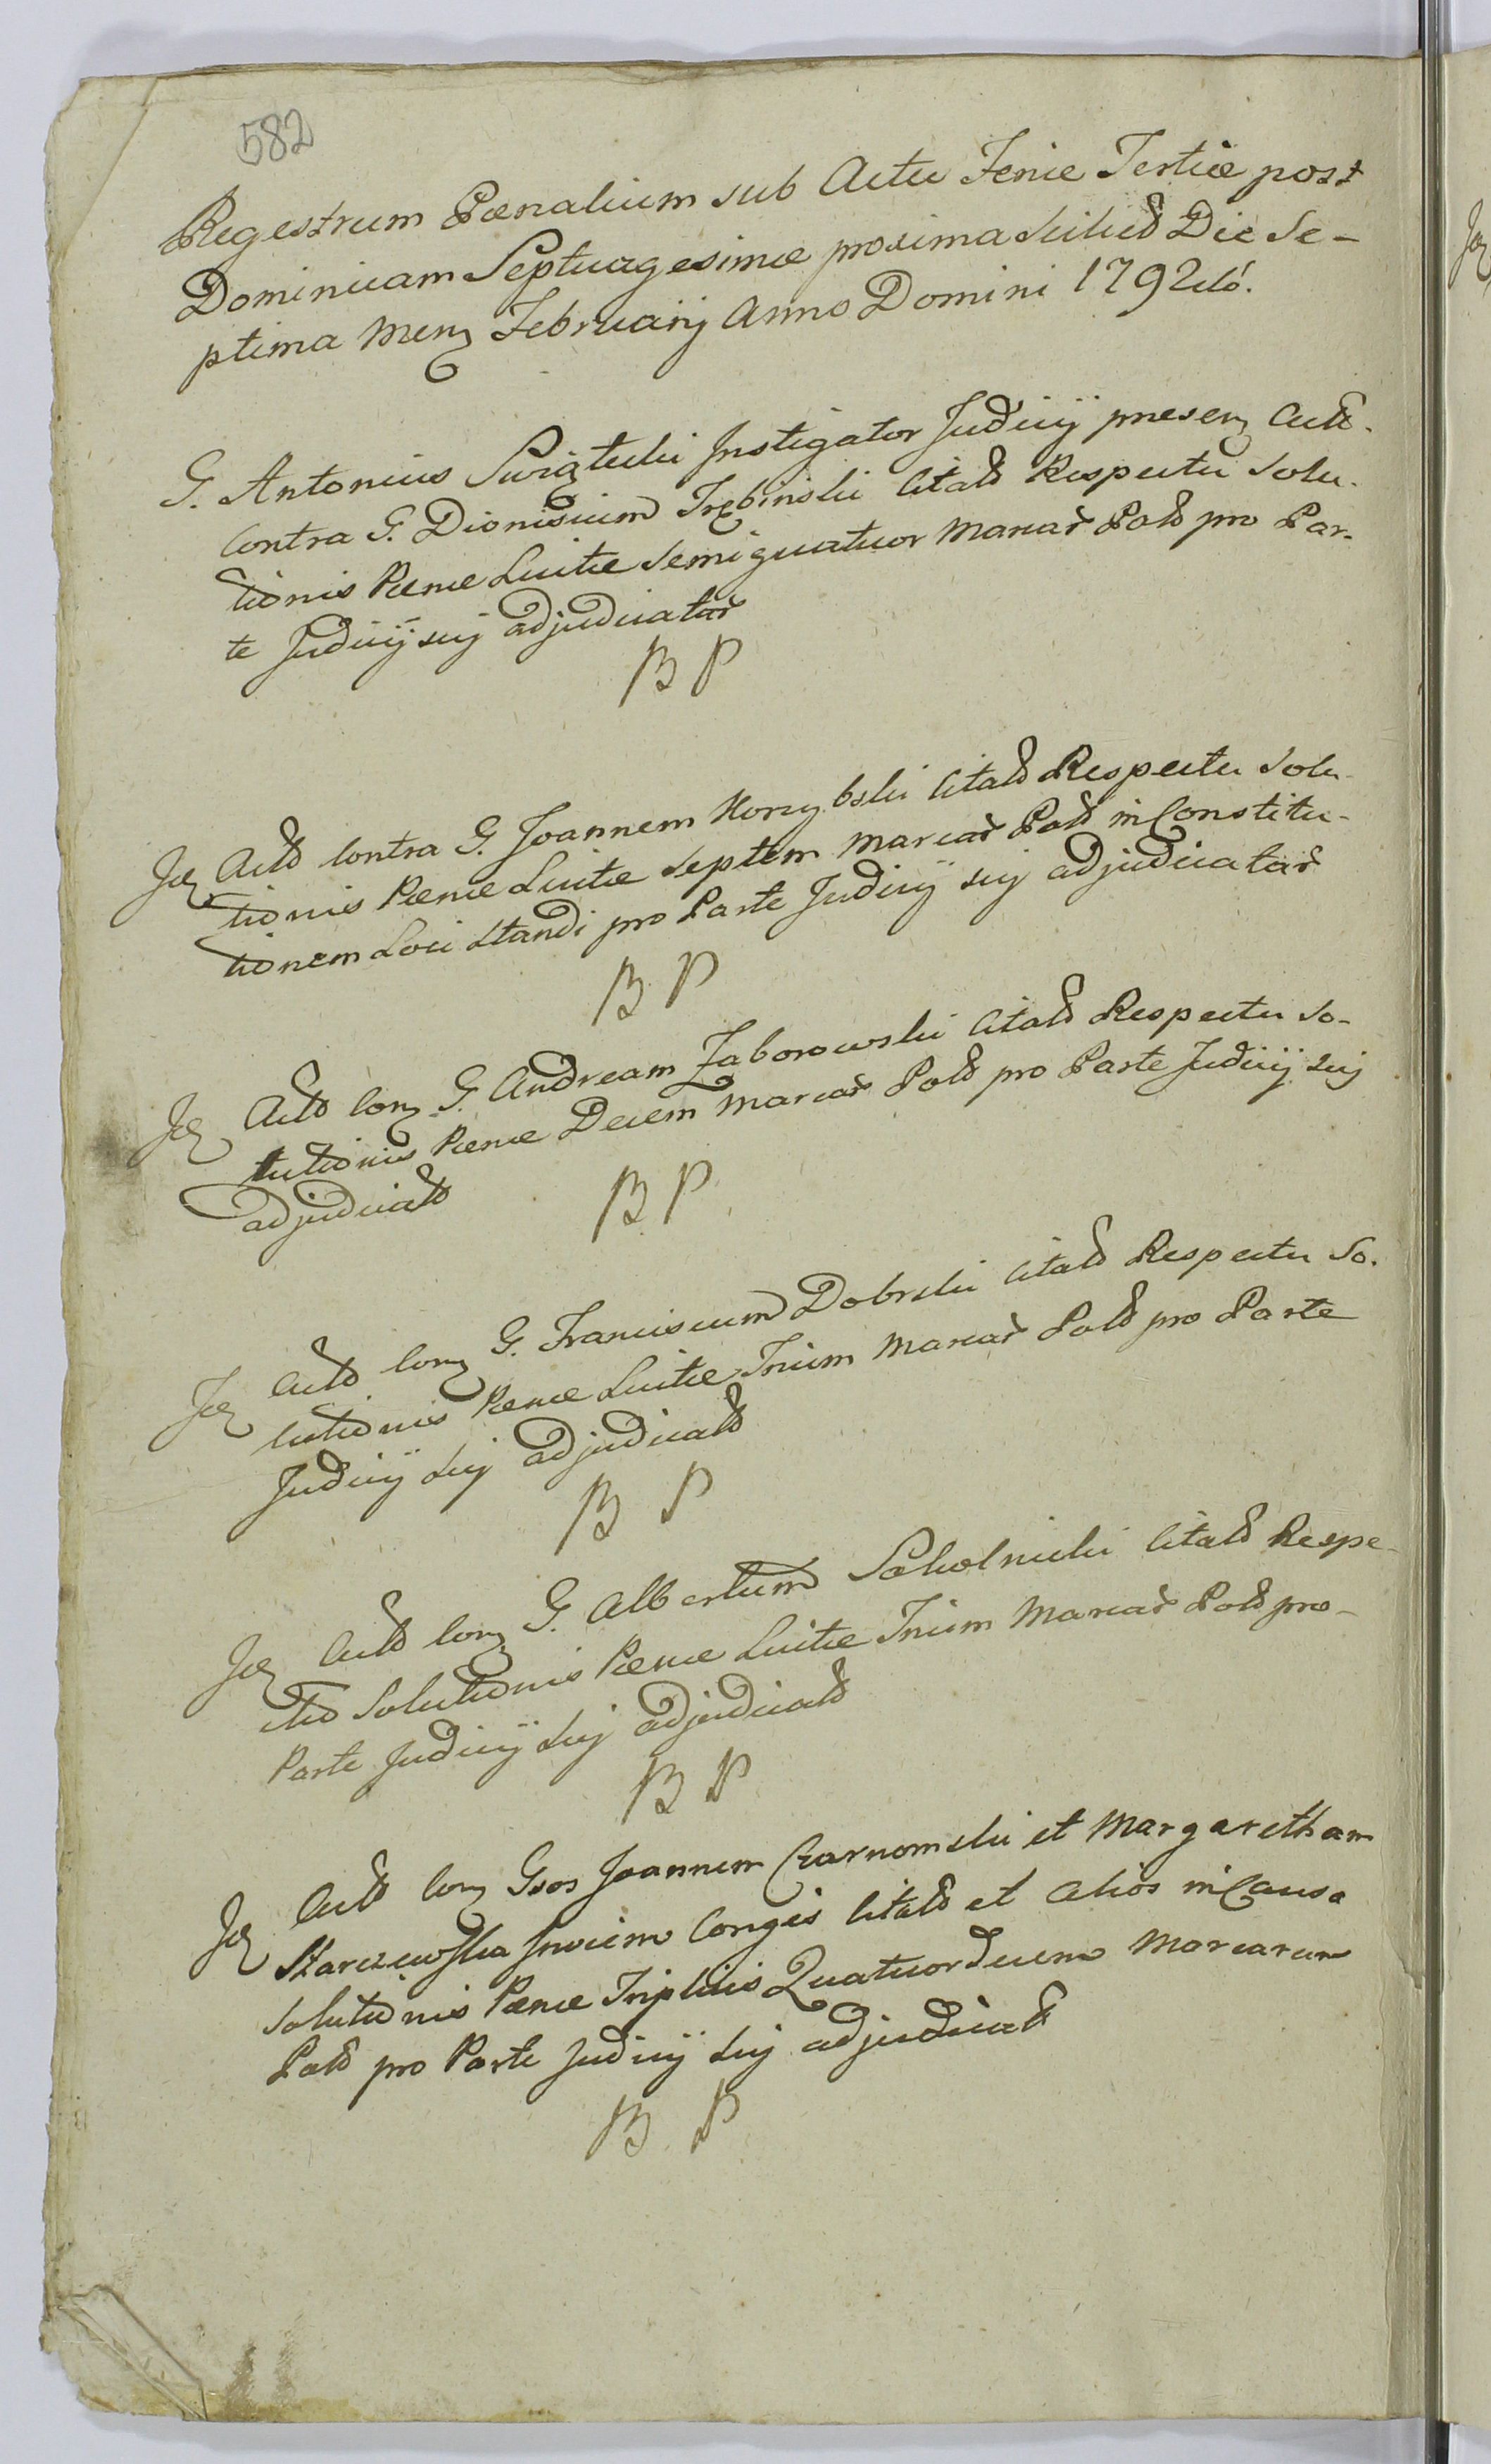 582
Regestrum Pœnalium sub Actu Feriæ Tertiæ post
Dominicam Septuagesimæ proxima Scilicꝫ Die Se-
ptima Menꝫ Februarij Anno Domini 1792do.
G. Antonius Swiątecki Instigator Judicij præsenꝫ Actt.
Contra G. Dionisium Trębinski Citatt Respectu Solu-
tionis Pœnæ Luitæ Semiquatuor Marcar Poll pro Par-
te Judicij sui adjudicatar
B P
Jdꝫ Actt Contra G. Joannem Korzybski Citatt Respectu Solu-
tionis Pœnæ Luitæ Septem Marcar Poll in Constitu-
tionem Loci Standi pro Parte Judicij sui adjudicatar
B P
Jdꝫ Actt Conꝫ G. Andream Zaborowski Citatt Respectu So-
lutionis Pœnæ Decem Marcar Poll pro Parte Judicij Sui
adjudicatt
B P
Jdꝫ Actt Conꝫ G. Franciscum Dobrski Citatt Respectu So-
lutionis Pœnæ Luitæ Trium Marcar Poll pro Parte
Judicij Sui adjudicatt
B P
Jdꝫ Actt Conꝫ G. Albertum Sokolnicki Citatt Respe-
ctu Solutionis Pœnæ Luitæ Trium Marcar Poll pro
Parte Judicij Sui adjudicatt
B P
Jdꝫ Actt Conꝫ Gsos Joannem Czarnomski et Margaretham
Starczewska Invicem Conges Citatt et Alios in Causa
Solutionis Pœnæ Triplicis Quatuordecem Marcarum
Poll pro Parte Judicij Sui adjudicatt
B P